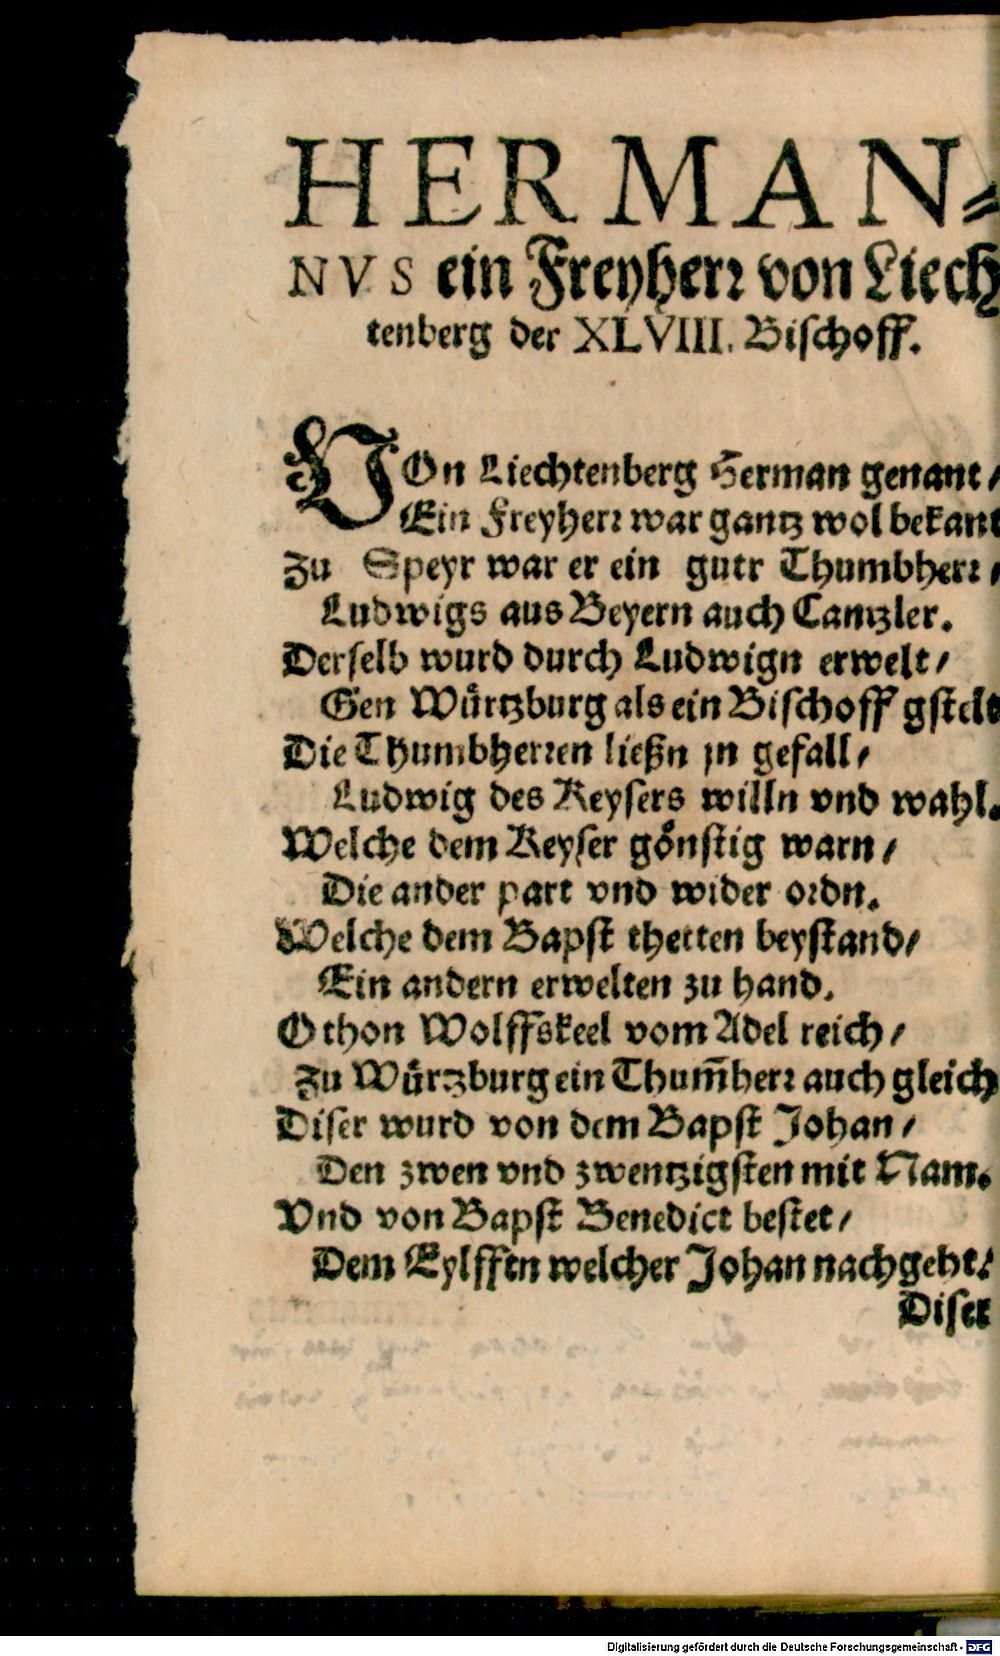 HERMAN⸗
NVS ein Freyherꝛ von Liech
tenberg der XLVIII. Bischoff.
VOn Liechtenberg Herman genant/
Ein Freyherꝛ war gantz wol bekant
Zu Speyr war er ein gutr Thumbherꝛ/
Ludwigs aus Beyern auch Cantzler.
Derselb wurd durch Ludwign erwelt/
Gen Wuͤrtzburg als ein Bischoff gstelt
Die Thumbherꝛen ließn jn gefall/
Ludwig des Keysers willn vnd wahl.
Welche dem Keyser goͤnstig warn/
Die ander part vnd wider oꝛdn.
Welche dem Bapst thetten beystand/
Ein andern erwelten zu hand.
Othon Wolffskeel vom Adel reich/
Zu Wuͤrzburg ein Thum̄herꝛ auch gleich
Diser wurd von dem Bapst Johan/
Den zwen vnd zwentzigsten mit Nam.
Vnd von Bapst Benedict bestet/
Dem Eylfften welcher Johan nachgeht/
Diser
Digitalisierung gefördert durch die Deutsche Forschungsgemeinschaft - DFG